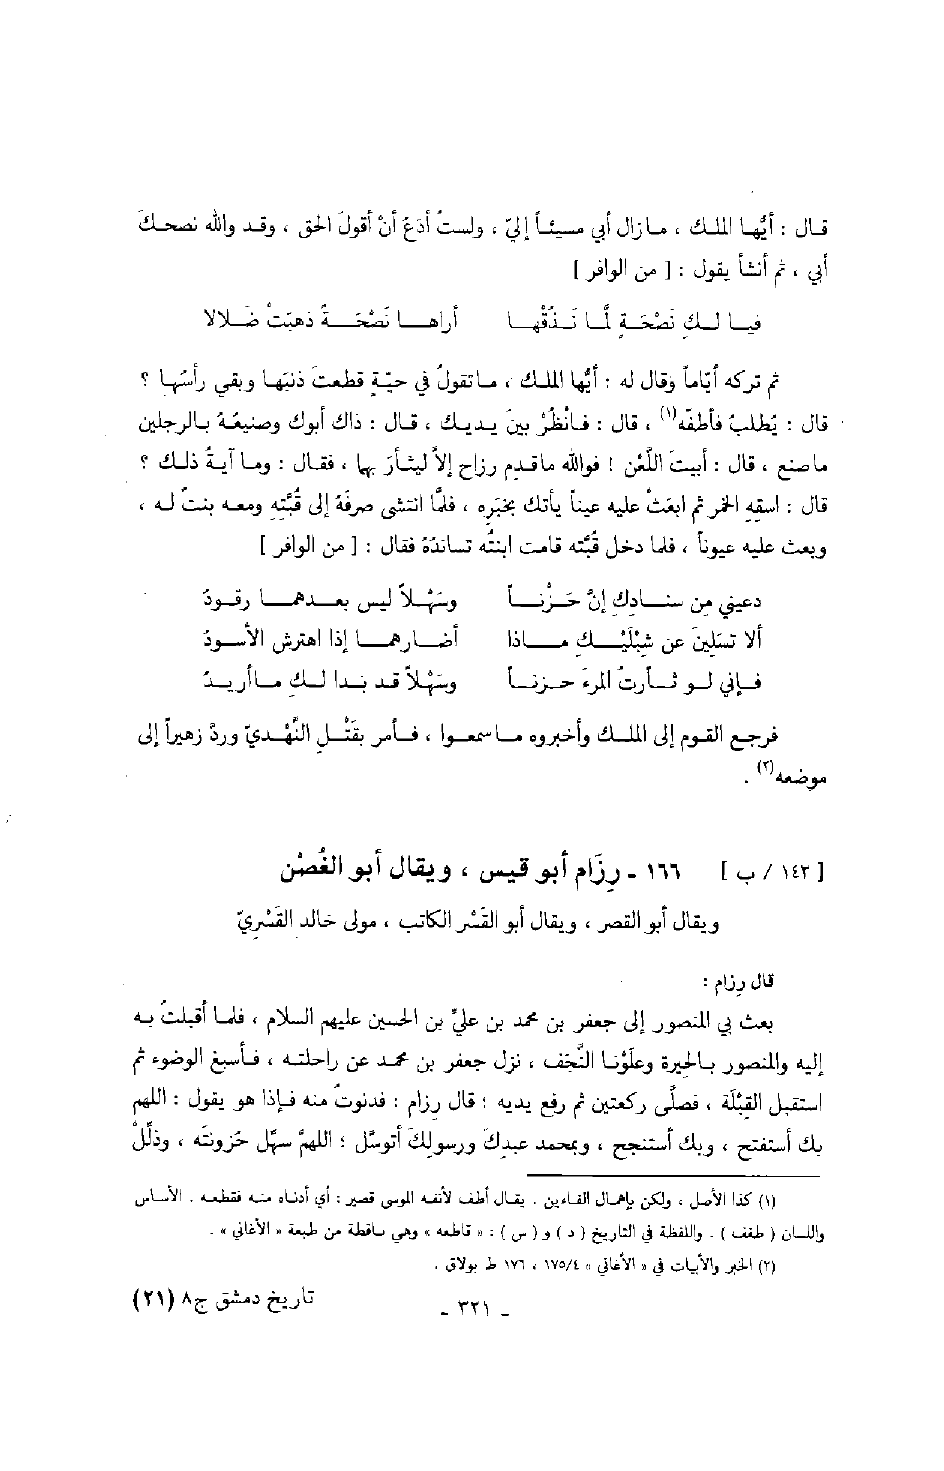 قال : أيُّها الملك ، مازال أبي مسيئاً إليّ ، ولستُ أدَعُ أنْ أقولَ الحق ، وقد والله نصحكَ
أبي ، ثم أنشأ يقول : [ من الوافر ]
فيا لكِ نَصْحَةٍ لَمَّا نَذُقْها أراها نَصْحَةً ذهبَتْ ضَلالا
ثم تركه أيّاماً وقال له : أيُّها الملك ، ماتقولُ في حيّةٍ قطعتَ ذنبَها وبقي رأسُها ؟
قال : يُطلبُ فأطفّه(١) ، قال : فانْظُرْ بينَ يديك ، قال : ذاك أبوك وصنيعُهُ بالرجلين
ماصنع ، قال : أبيتَ اللَّعْن ! فوالله ماقدم رزاح إلاّ ليثأرَ بها ، فقال : وما آيةُ ذلك ؟
قال : اسقِهِ الخمر ثم ابعَثْ عليه عيناً يأتك بخبَره ، فلمَّا انتشى صرفَهُ إلى قُبَّتِهِ ومعه بنتٌ له ،
وبعث عليه عيوناً ، فلما دخل قبَّتَه قامت ابنتُه تساندُهُ فقال : [ من الوافر ]
دعيني من سنادِكِ إنّ حَزْناً وسَهْلاً ليس بعدهما رقودُ
ألا تسَلينَ عن شِبْلَيْكِ ماذا أضارهما إذا اهترش الأسودُ
فإني لو ثأرتُ المرءَ حزناً وسَهْلاً قد بدا لكِ ماأريدُ
فرجع القوم إلى الملك وأخبروه ماسمعوا ، فأمر بقَتْلِ النَّهْديّ وردَّ زهيراً إلى
موضعه(٢) .
[ ١٤٢ / ب ] ١٦٦ - رِزَام أبو قيس ، ويقال أبو الغُصْن
ويقال أبو القصر ، ويقال أبو القَسْر الكاتب ، مولى خالد القَسْريّ
قال رِزام :
بعث بي المنصور إلى جعفر بن محمد بن عليّ بن الحسين عليهم السلام ، فلما أقبلتُ به
إليه والمنصور بالحيرة وعلَوْنا النَّجَف ، نزل جعفر بن محمد عن راحلته ، فأسبغ الوضوء ثم
استقبل القبْلَة ، فصلَّى ركعتين ثم رفع يديه ؛ قال رزام : فدنوتُ منه فإذا هو يقول : اللهم
بك أستفتح ، وبك أستنجح ، وبمحمد عبدِكَ ورسولِكَ أتوسَّل ؛ اللهمَّ سهِّل حُزونَتَه ، وذلِّلْ
(١) كذا الأصل ، ولكن بإهمال الفاءين . يقال أطف لأنفه الموسى قصير : أي أدناه منه فقطعه . الأساس
واللسان ( طفف ) . واللفظة في التاريخ ( د ) و ( س ) : « قاطعه » وهي ساقطة من طبعة « الأغاني » .
(٢) الخبر والأبيات في « الأغاني » ١٧٥/٤ ، ١٧٦ ط بولاق .
- ٣٢١ - تاريخ دمشق ج٨ (٢١)